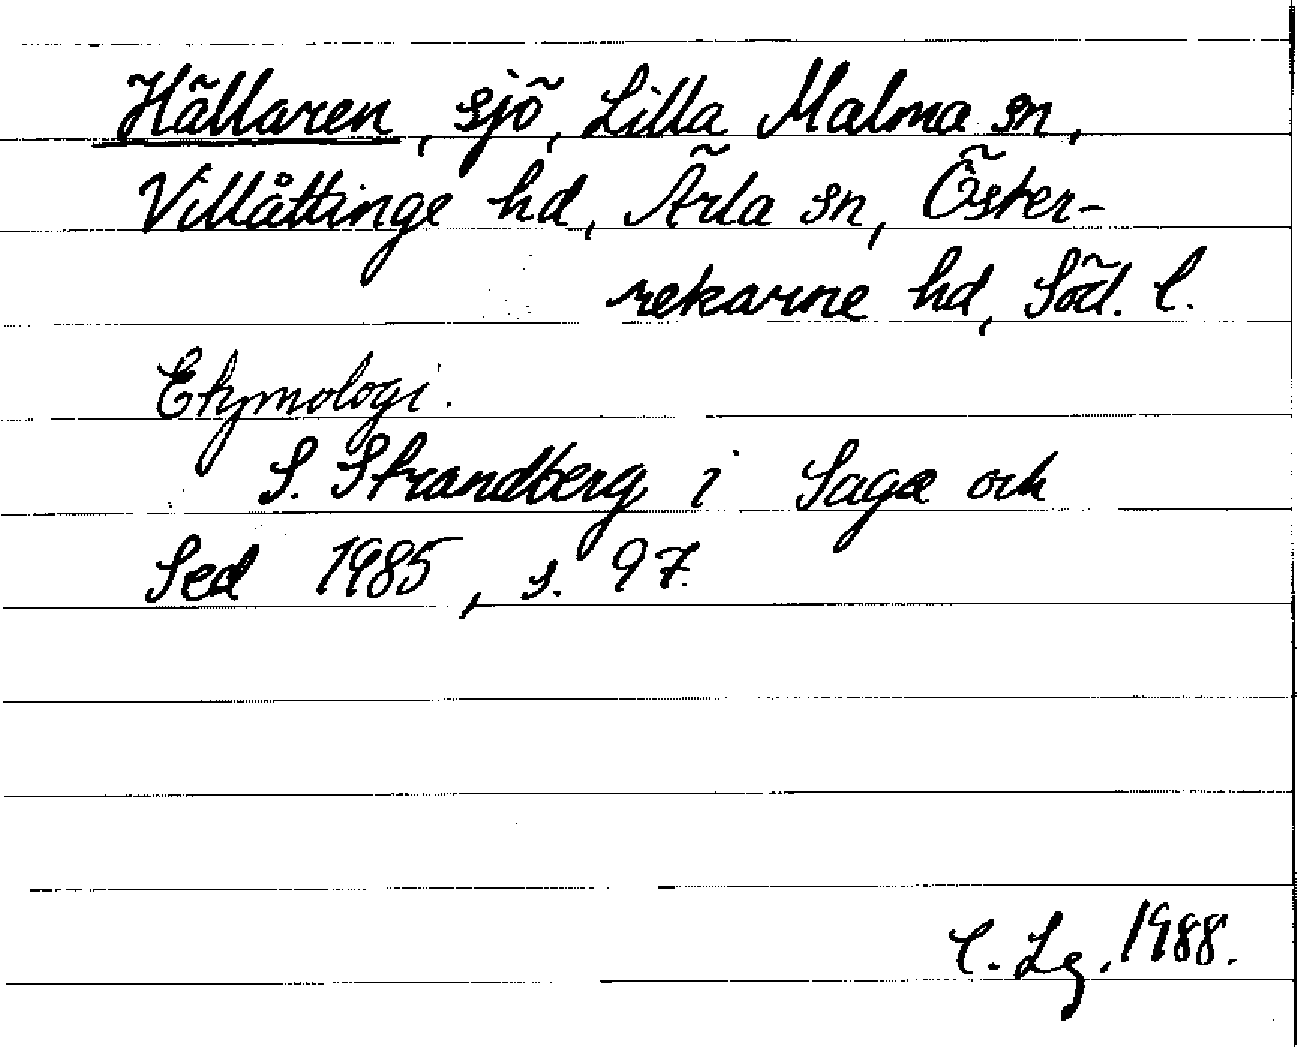 Hällaren, sjö, Lilla Malma sn,
Villåttinge hd, Ärla sn, Öster-
rekarne hd, Söd. l.
Etymologi.
S. Strandberg i Saga och
Sed 1985, s. 97.
C. Lg, 1988.